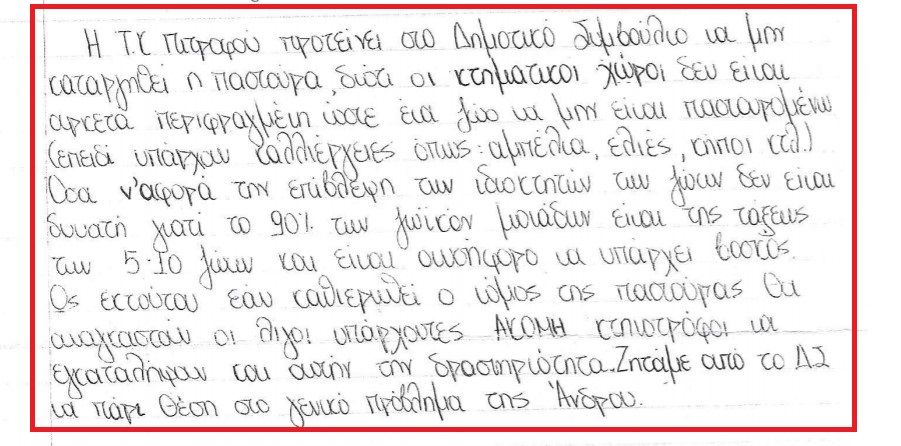 Η Τ.Κ Πιτροφού προτείνει στο Δημοτικό Συμβούλιο να μην
καταργηθεί η παστούρα, διότι οι κτηματικοί χώροι δεν είναι
αρκετά περιφραγμένη ώστε ένα ζώο να μην είναι παστουρομένω
(επειδί υπάρχουν καλλιέργειες όπως: αμπέλια, ελιές, κήποι κτλ.)
Οσα ν'αφορά την επίβλεψη των ιδιοκτητών των ζώων δεν είναι
δυνατή γιατί το 90% των ζωϊκόν μονάδων είναι της τάξεως
των 5-10 ζώων και είναι ασύμφορο να υπάρχει βοσκός.
Ος εκτούτου εάν καθιερωθεί ο νόμος της παστούρας θα
αναγκαστούν οι λίγοι υπάρχοντες ΑΚΟΜΗ κτηνοτρόφοι να
εγκαταλήψουν και αυτήν την δραστηριότητα. Ζητάμε από το Δ.Σ
να πάρι θέση στο γενικό πρόβλημα της Άνδρου.